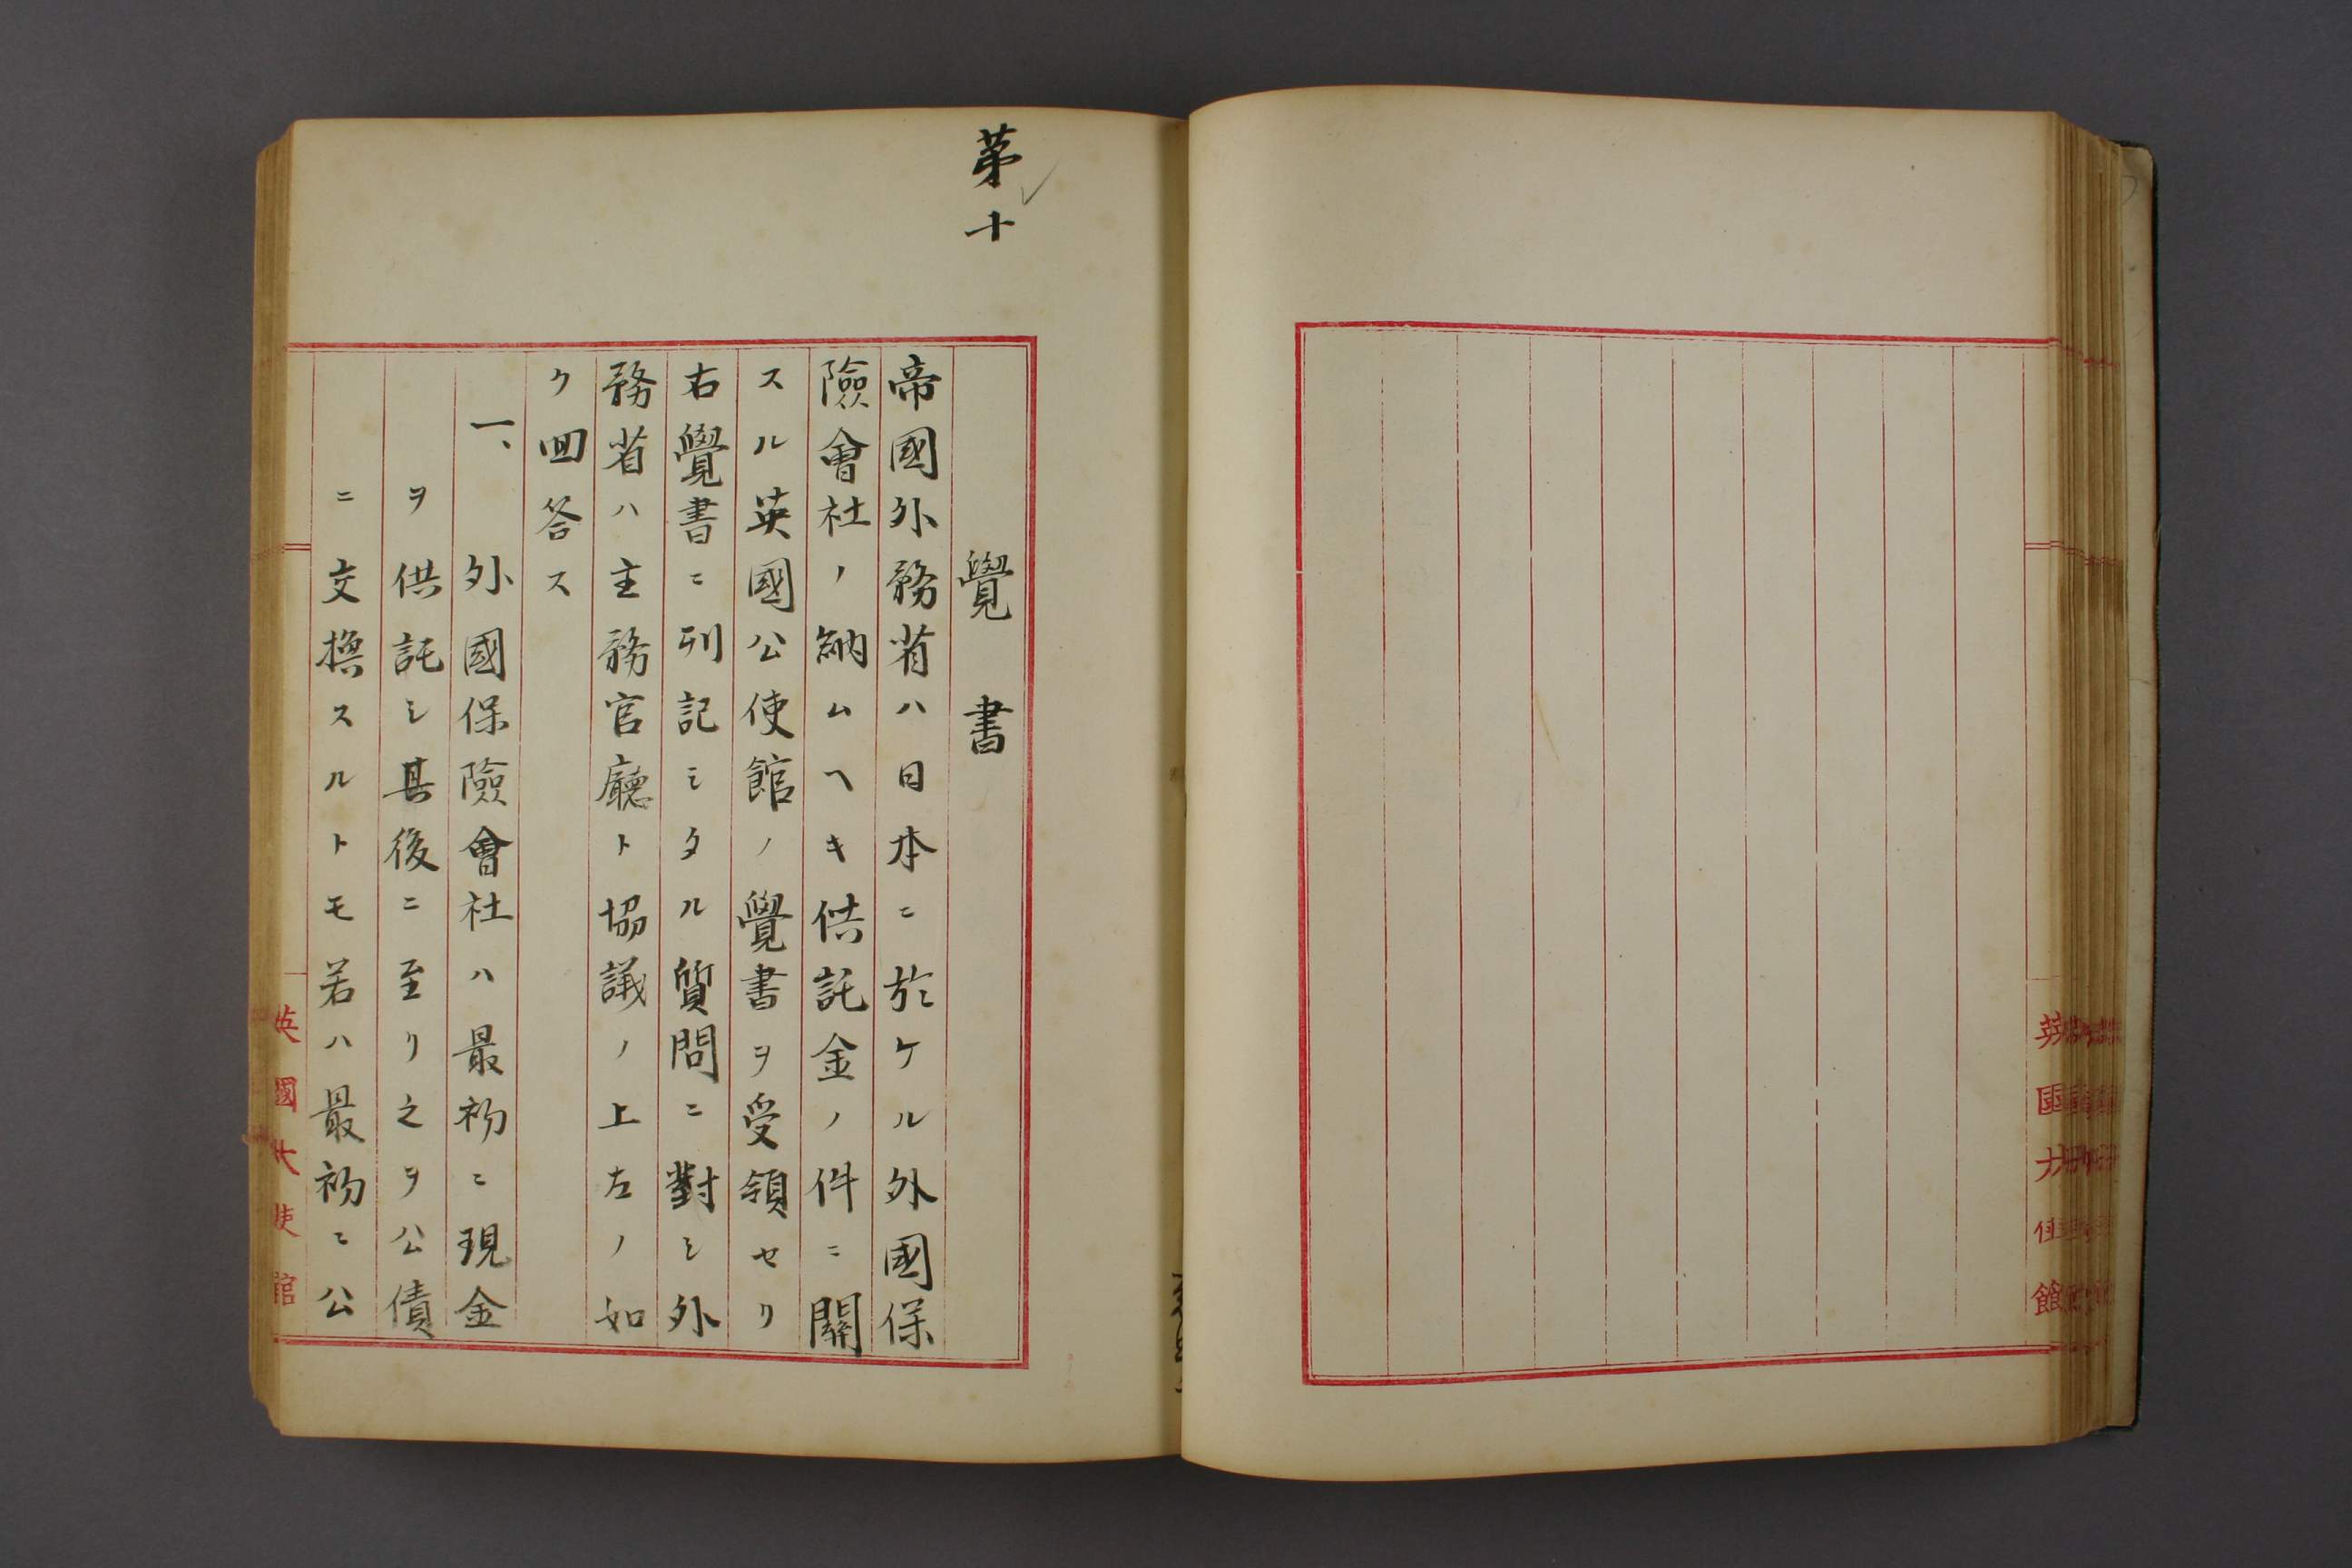 第十
覺書
帝國外務省ハ日本ニ於ケル外國保
險會社ノ納ムヘキ供託金ノ件ニ關
スル英國公使館ノ覺書ヲ受領セリ
右覺書ニ列記シタル質問ニ對シ外
務省ハ主務官廳ト協議ノ上左ノ如
ク回答ス
一、外國保險會社ハ最初ニ現金
ヲ供託シ其後ニ至リ之ヲ公債
ニ交換スルトモ若ハ最初ニ公
英國大使館